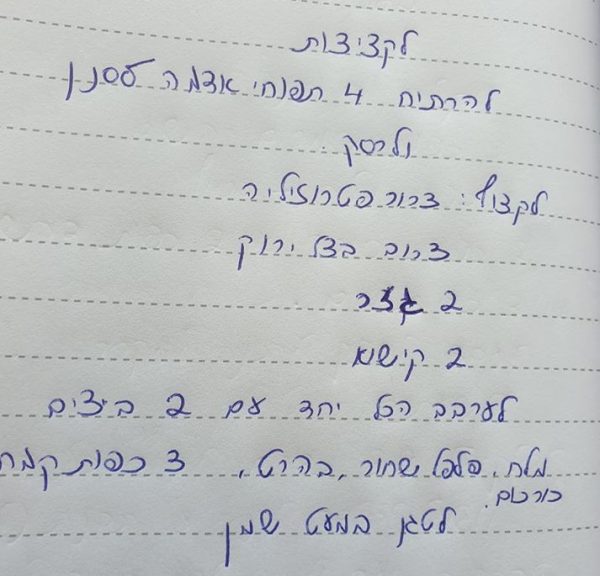 לקציצות
להרתיח 4 תפוחי אדמה
ולרסק.
לקצוץ: צרור פטרוזיליה
צרור בצל ירוק
2 גזר
2 קישוא
לערבב הכל יחד עם 2 ביצים
מלח, פלפל שחור, בהרט, 3 כפות קמח
כורכום.
לטגן במעט שמן